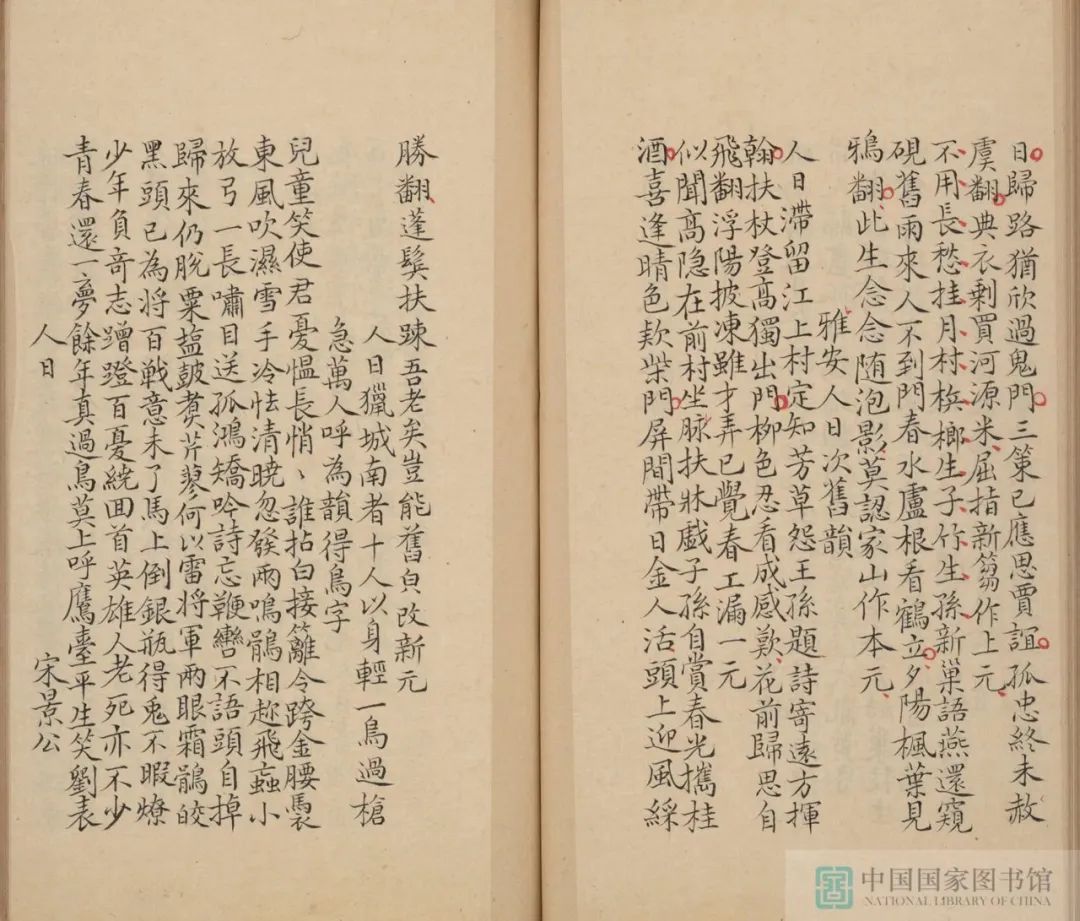 日歸路猶欣過鬼門三策已應思賈誼孤忠終未赦
虞翻典衣剰買河源米屈指新篘作上元
不用長愁挂月村檳榔生子竹生孫新巢語燕還窺
硯舊雨來人不到門春水蘆根看鶴立夕陽楓葉見
鴉翻此生念念随泡影莫認家山作本元
雅安人日次舊韻
人日滯留江上村定知芳草怨王孫題詩寄遠方揮
翰扶杖登高獨出門柳色忍看成感歎花前歸思自
飛翻浮陽披凍雖才弄已覺春工漏一元
似聞高隐在前村坐脉扶牀戯子孫自賞春光攜桂
酒喜逢晴色款柴門屏間帶日金人活頭上迎風綵
勝翻蓬鬓扶踈吾老矣豈能舊貟改新元
人日獵城南者十人以身輕一鳥過槍
急萬人呼為韻得鳥字
兒童笑使君憂愠長悄、誰拈白接籬令跨金腰褭
東風吹濕雪手冷怯清曉忽發兩鳴鶻相趂飛蝱小
放弓一長嘯目送孤鴻矯吟詩忘鞭轡不語頭自掉
歸來仍脫粟塩豉煑芹蓼何以雷将軍兩眼霜鶻皎
黑頭已為将百戦意未了馬上倒銀瓶得兎不暇燎
少年負奇志蹭蹬百憂繞囬首英雄人老死亦不少
青春還一夢餘年真過鳥莫上呼鷹臺平生笑劉表
人日
宋景公
中国国家图书馆
NATIONAL LIBRARY OF CHINA